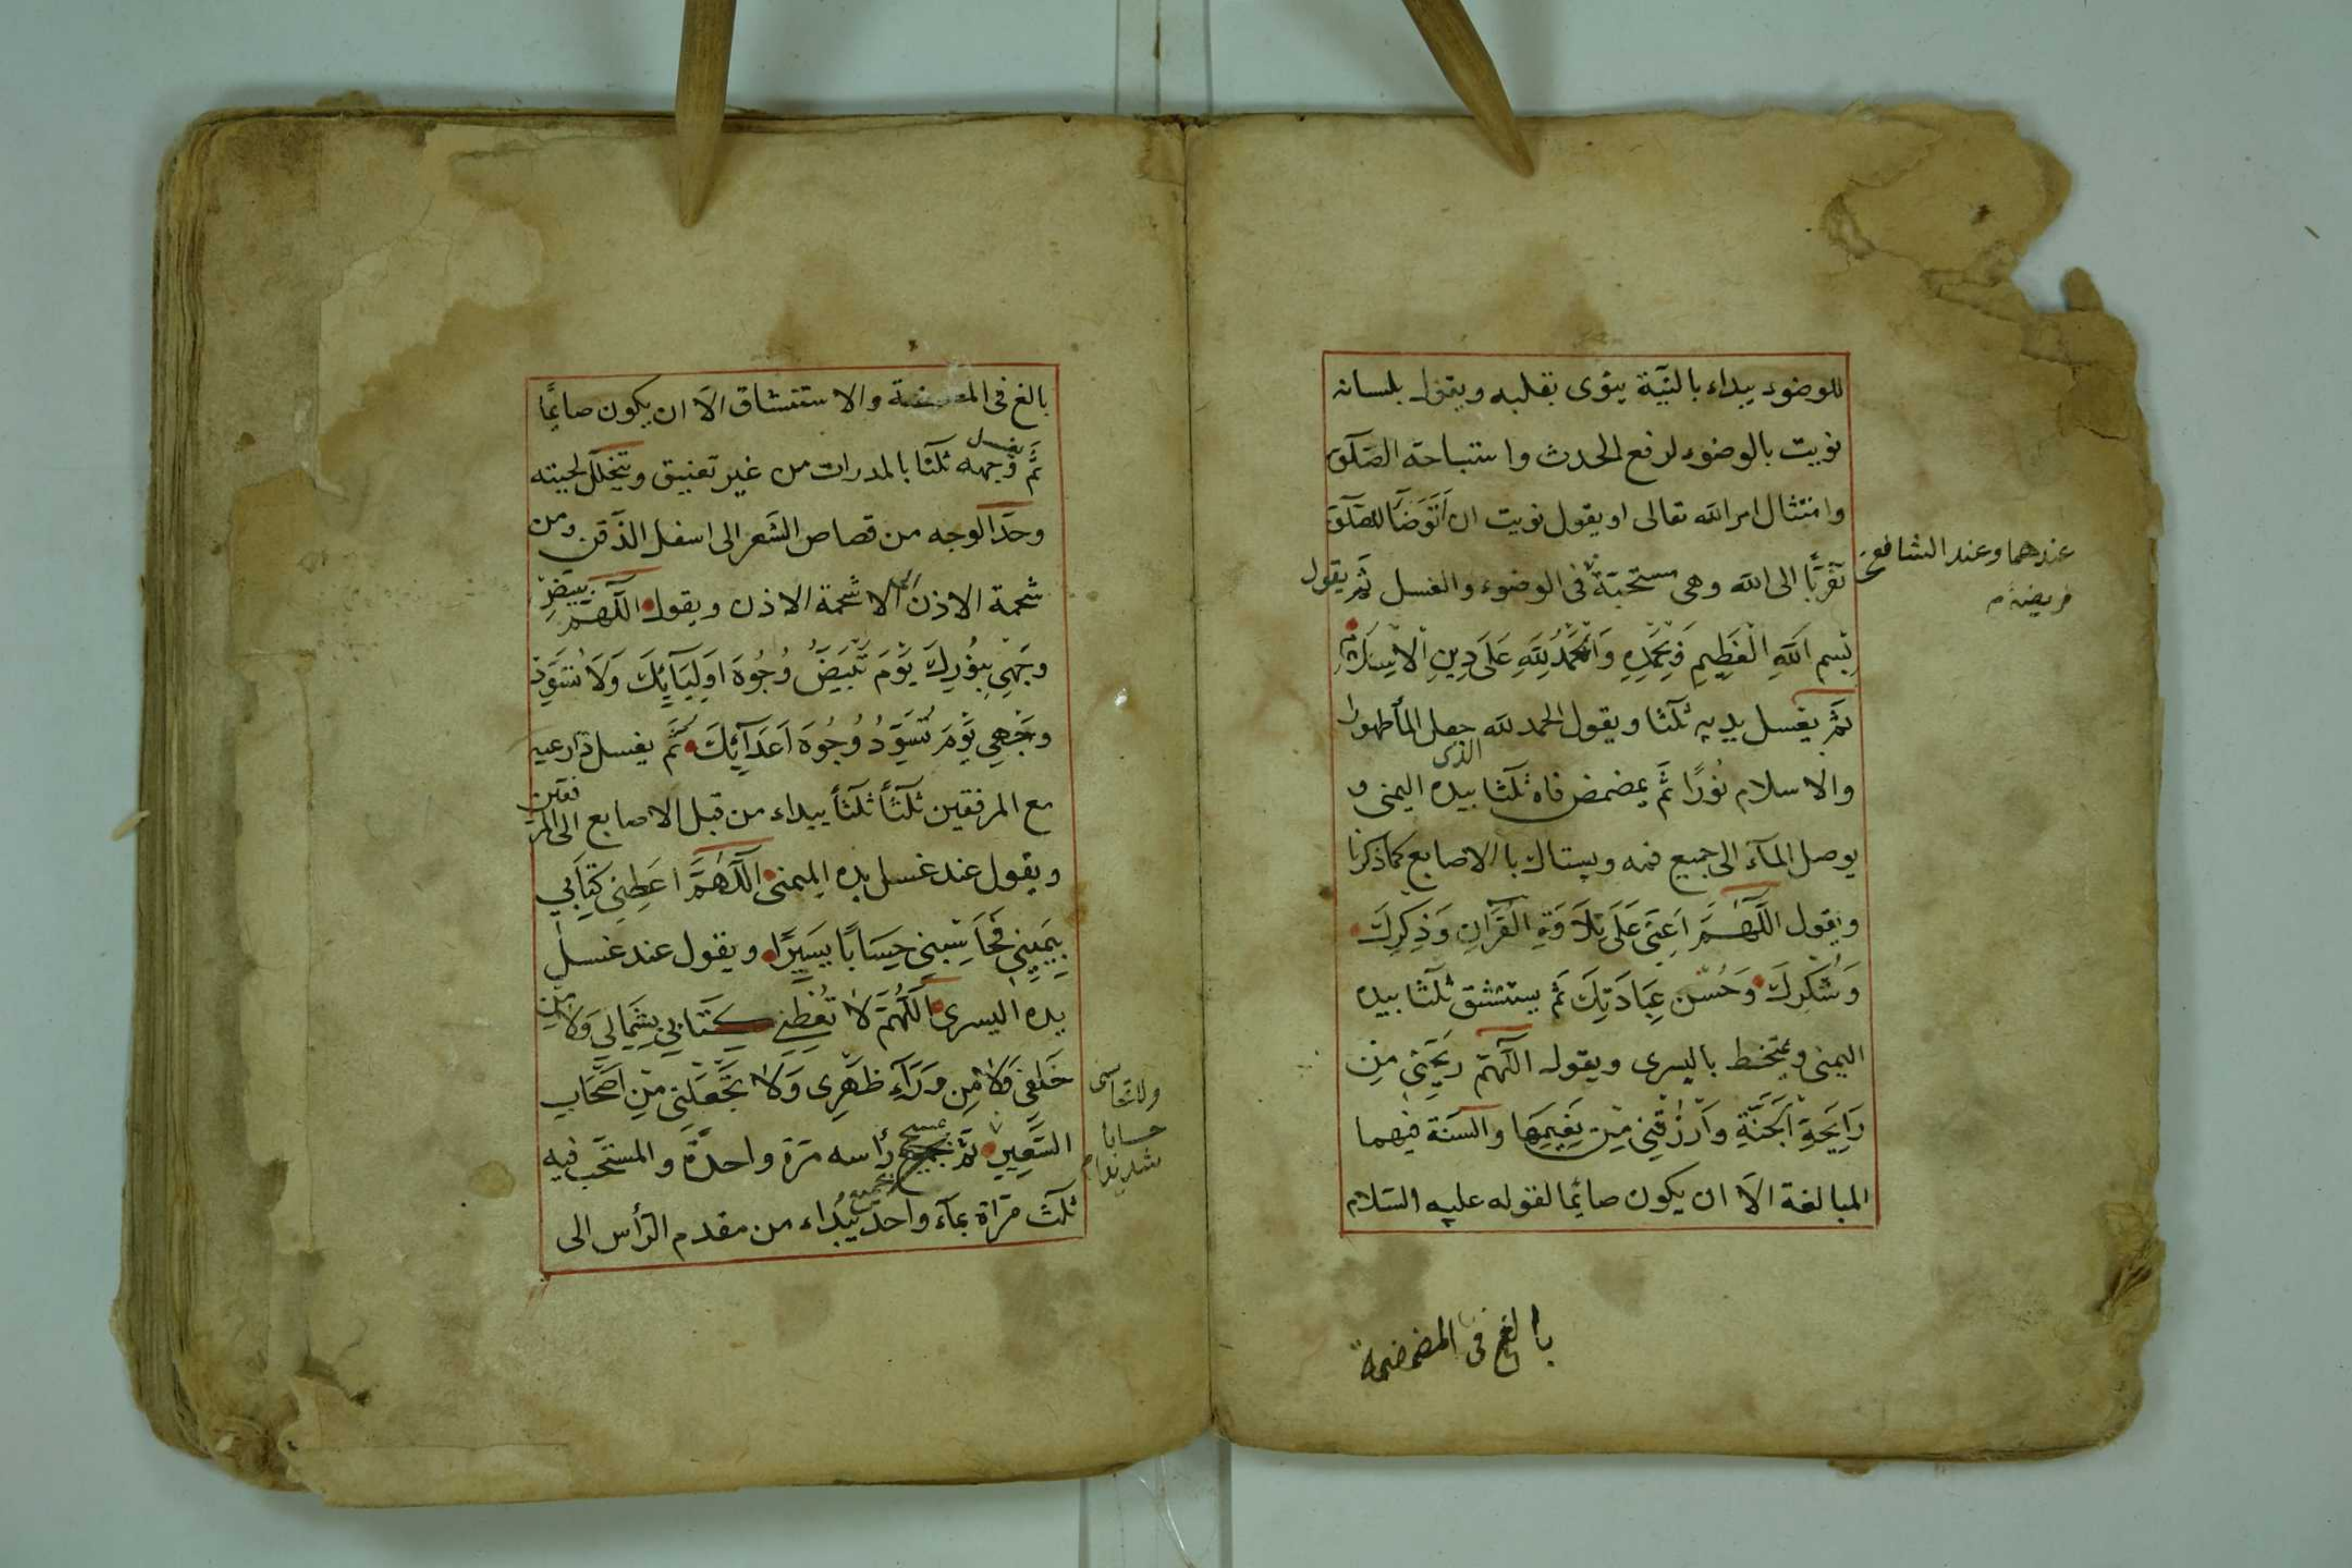 للوضوء يبداء بالنيّة ينوى بقلبه ويقول بلسانه
نويت بالوضوء لرفع الحدث واستباحة الصّلوة
وامتثال امر الله تعالى او يقول نويت ان اَتَوَضَّأَ للصّلوة
تقرّبًا الى الله وهى مستحبّة فى الوضوء والغسل ثمّ يقول
عندهما وعند الشافعى
فريضة م
بِسْمِ اللهِ الْعَظِيمِ وَبِحَمْدِهِ وَالْحَمْدُ لِلّهِ عَلَى دِينِ الْاِسْلَامِ
ثمّ يغسل يديه ثلثا ويقول الحمد لله الذى جعل المأ طهورا
والاسلام نُورًا ثمّ يمضمض فاه ثلثا بيده اليمنى و
يوصل المآء الى جميع فمه ويستاك بالاصابع كما ذكرنا
ويقول اَللّهُمَّ اَعِنِّى عَلَى تِلَاوَةِ الْقُرْانِ وَذِكْرِكَ
وَشُكْرِكَ وَحُسْنِ عِبَادَتِكَ ثمّ يستنشق ثلثا بيده
اليمنى ويمتخط باليسرى ويقول اللّهمّ رَيِّحْنِى مِنْ
رَايِحَةِ الْجَنَّةِ وَارْزُقْنِى مِنْ نَعِيمِهَا والسنّة فيهما
المبالغة الّا ان يكون صائمًا لقوله عليه السّلام
بالغ فى المضمضة
بالغ فى المضمضة والاستنشاق الّا ان يكون صايمًا
ثمّ يغسل وجهه ثلثا بالمدرات من غير تعنيق ويتخلّل لحيته
وحدّ الوجه من قصاص الشعر الى اسفل الذّقن ومن
شحمة الاذن الى شحمة الاذن ويقول اللّهمّ بَيِّضْ
وَجْهِى بِنُورِكَ يَوْمَ تَبْيَضُّ وُجُوهَ اَوْلِيَآئِكَ وَلَا تُسَوِّدْ
وَجْهِى يَوْمَ تُسَوِّدُ وُجُوهَ اَعْدَآئِكَ ثمّ يغسل ذراعيه
مع المرفقين ثلثًا ثلثًا يبداء من قبل الاصابع الى المرفقين
ويقول عند غسل يده اليمنى اَللّهُمَّ اَعْطِنِى كِتَابِى
بِيَمِينِى فَحَاسِبْنِى حِسَابًا يَسِيرًا ويقول عند غسل
يده اليسرى اَللّهُمَّ لَا تُعْطِنِى كِتَابِى بِشِمَالِى وَلَا مِنْ
خَلْفِى وَلَا مِنْ وَرَآءِ ظَهْرِى وَلَا تَجْعَلْنِى مِنْ اَصْحَابِ
ولا تحاسبنى
حسابا
شديدا م
السَّعِيرِ ثمّ يمسح رأسه مرّة واحدة والمستحب فيه
ثلث مرّاة بمآء واحد يبداء من مقدم الرّأس الى